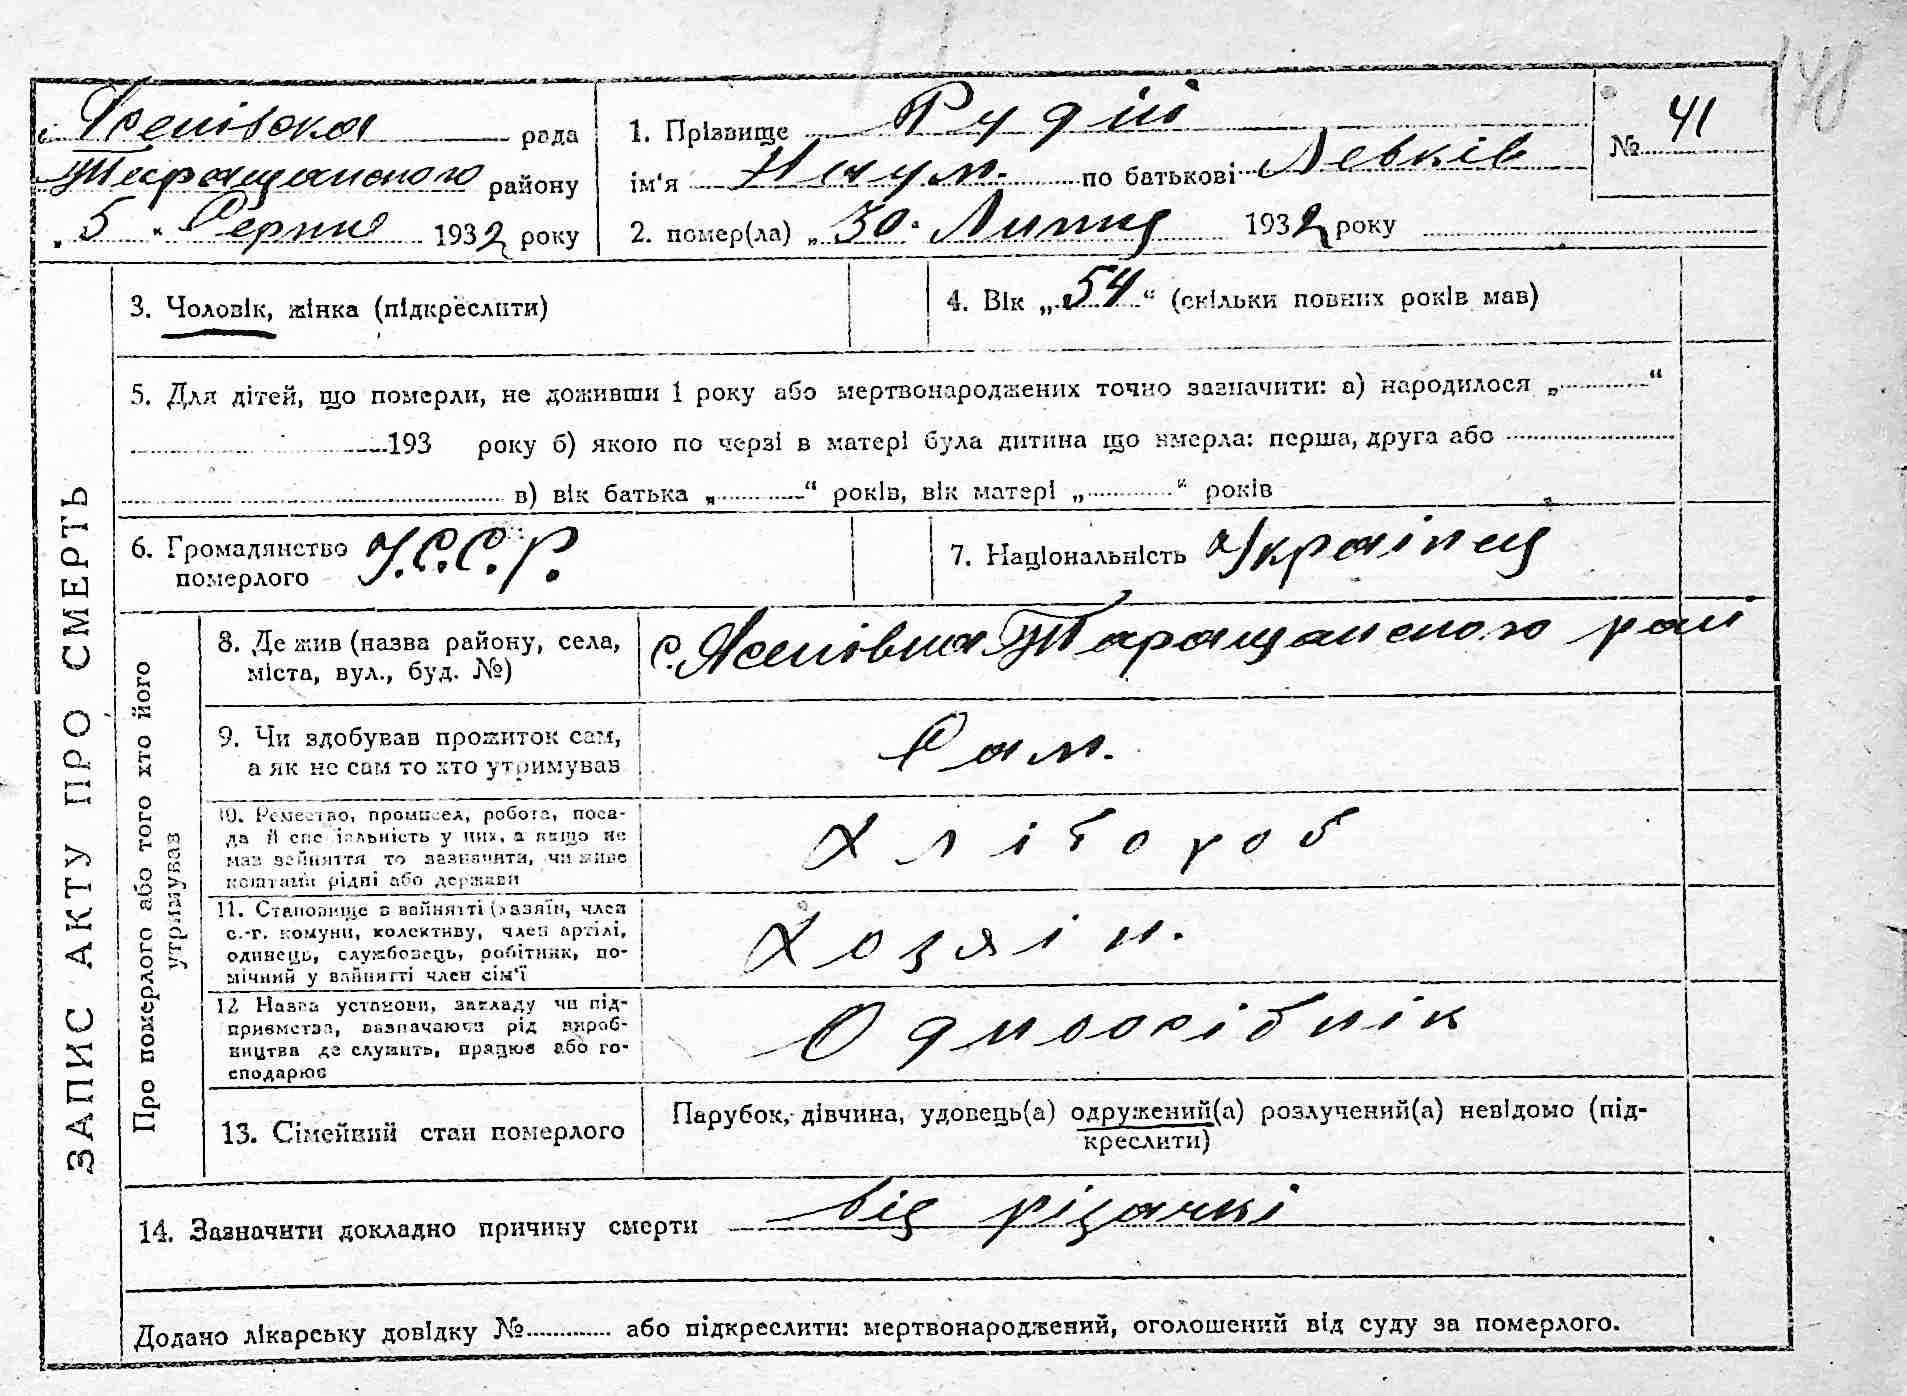 148
с. Ясенівска рада
Таращанского району
„5" Серпня 1932 року
1. Прізвище Рудий
ім'я Наум. по батькові Левків
2. помер(ла) „30" Липня 1932 року
№ 41
3. Чоловік, жінка (підкреслити)
4. Вік „54" (скільки повних років мав)
5. Для дітей, що померли, не доживши 1 року або мертвонароджених точно зазначити: а) народилося „ "
193 року б) якою по черзі в матері була дитина що вмерла: перша, друга або
в) вік батька „ " років, вік матері „ " років
6. Громадянство
померлого У.С.С.Р.
7. Національність Українец
ЗАПИС АКТУ ПРО СМЕРТЬ
Про померлого або того хто його
утримував
8. Де жив (назва району, села,
міста, вул., буд. №)
с. Ясенівка Таращанского раві
9. Чи здобував прожиток сам,
а як не сам то хто утримував
Сам.
10. Ремество, промисел, робота, поса-
да й спеціальність у них, а якщо не
мав зайняття то зазначити, чи живе
коштами рідні або держави
Хлібороб
11. Становище в зайнятті (хазяїн, член
с.-г. комуни, колективу, член артілі,
одинець, службовець, робітник, по-
мічний у зайнятті член сім'ї
Хозяін.
12 Назва установи, закладу чи під-
приємства, зазначаючи рід вироб-
ництва де служить, працює або го-
сподарює
Одноосібнік
13. Сімейний стан померлого
Парубок, дівчина, удовець(а) одружений(а) розлучений(а) невідомо (під-
креслити)
14. Зазначити докладно причину смерти від різачкі
Додано лікарську довідку № або підкреслити: мертвонароджений, оголошений від суду за померлого.